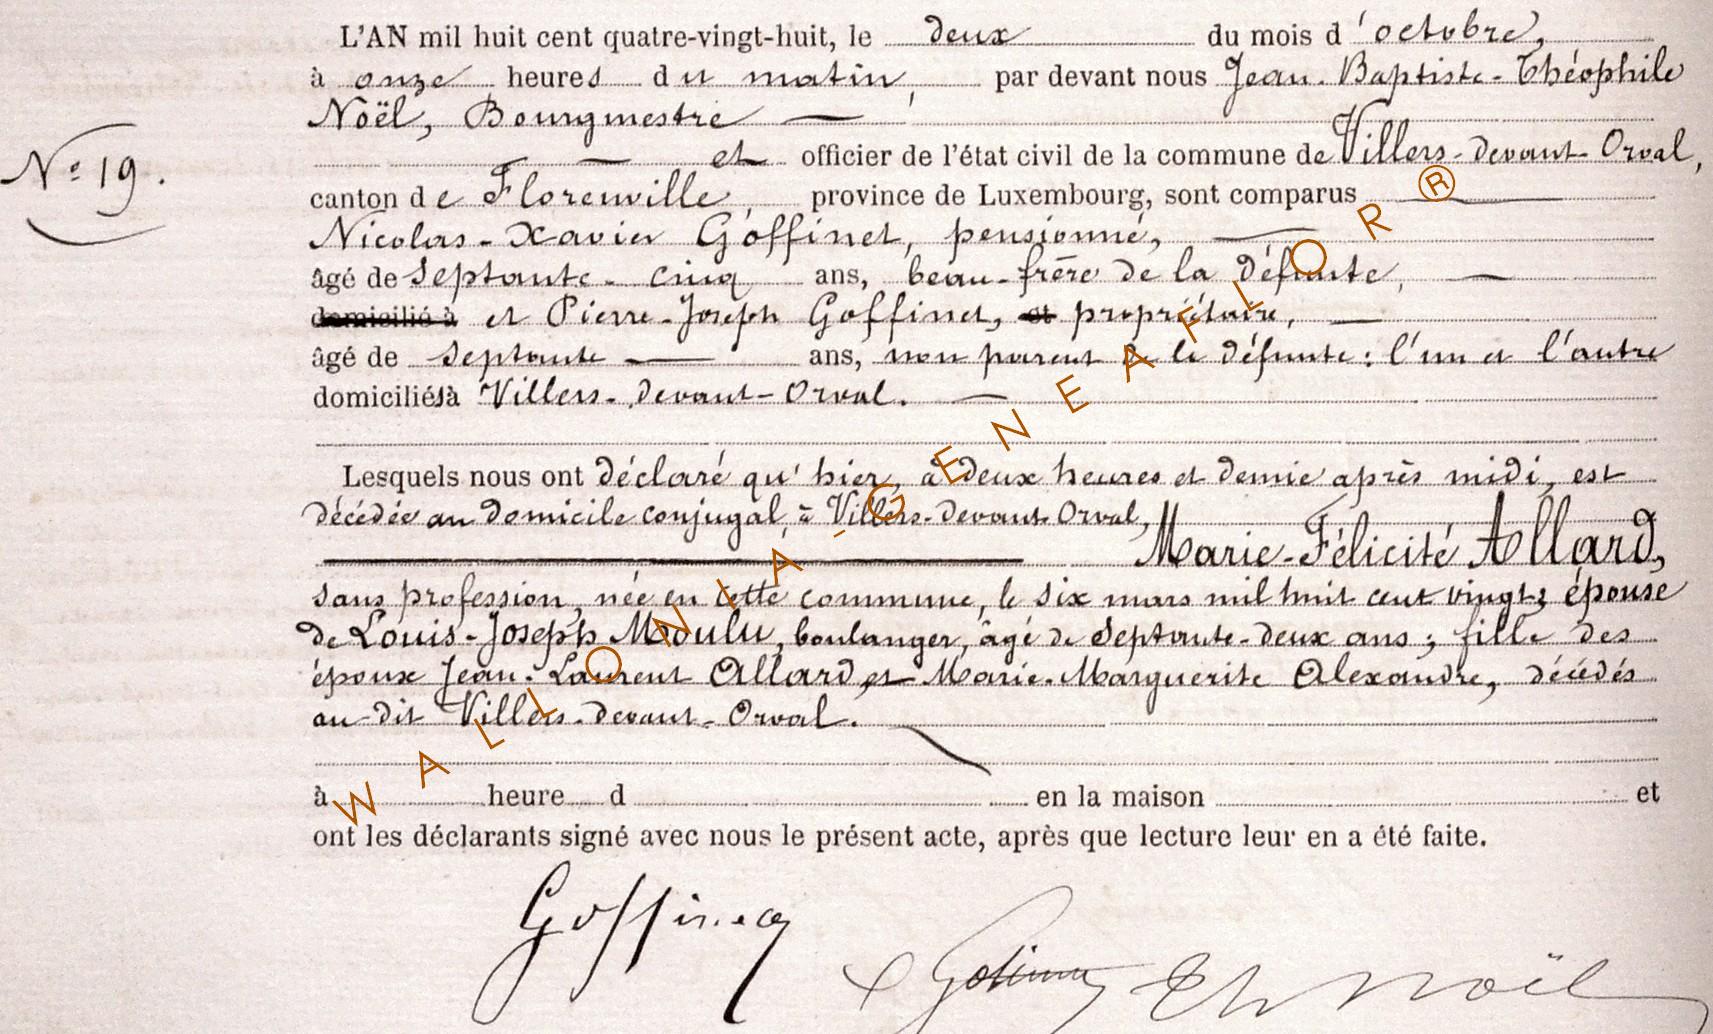 L'AN mil huit cent quatre-vingt-huit, le deux du mois d'octobre,
à onze heures du matin, par devant nous Jean-Baptiste-Théophile
Noël, Bourgmestre
et officier de l'état civil de la commune de Villers-devant-Orval,
N° 19.
canton de Florenville, province de Luxembourg, sont comparus
Nicolas-Xavier Goffinet, pensionné,
âgé de septante-cinq ans, beau-frère de la défunte,
domicilié à et Pierre-Joseph Goffinet, et propriétaire,
âgé de septante ans, non parent de la défunte : l'un et l'autre
domiciliés à Villers-devant-Orval.
Lesquels nous ont déclaré qu'hier, à deux heures et demie après midi, est
décédée au domicile conjugal, à Villers-devant-Orval,
Marie-Félicité Allard,
sans profession, née en cette commune, le six mars mil huit cent vingt; épouse
de Louis-Joseph Moulu, boulanger, âgé de septante-deux ans ; fille des
époux Jean-Laurent Allard, et Marie-Marguerite Alexandre, décédés
au-dit Villers-devant-Orval.
à heure d en la maison et
ont les déclarants signé avec nous le présent acte, après que lecture leur en a été faite.
Goffinet
Th Noël
WALLONIA-GENEAFLOR®